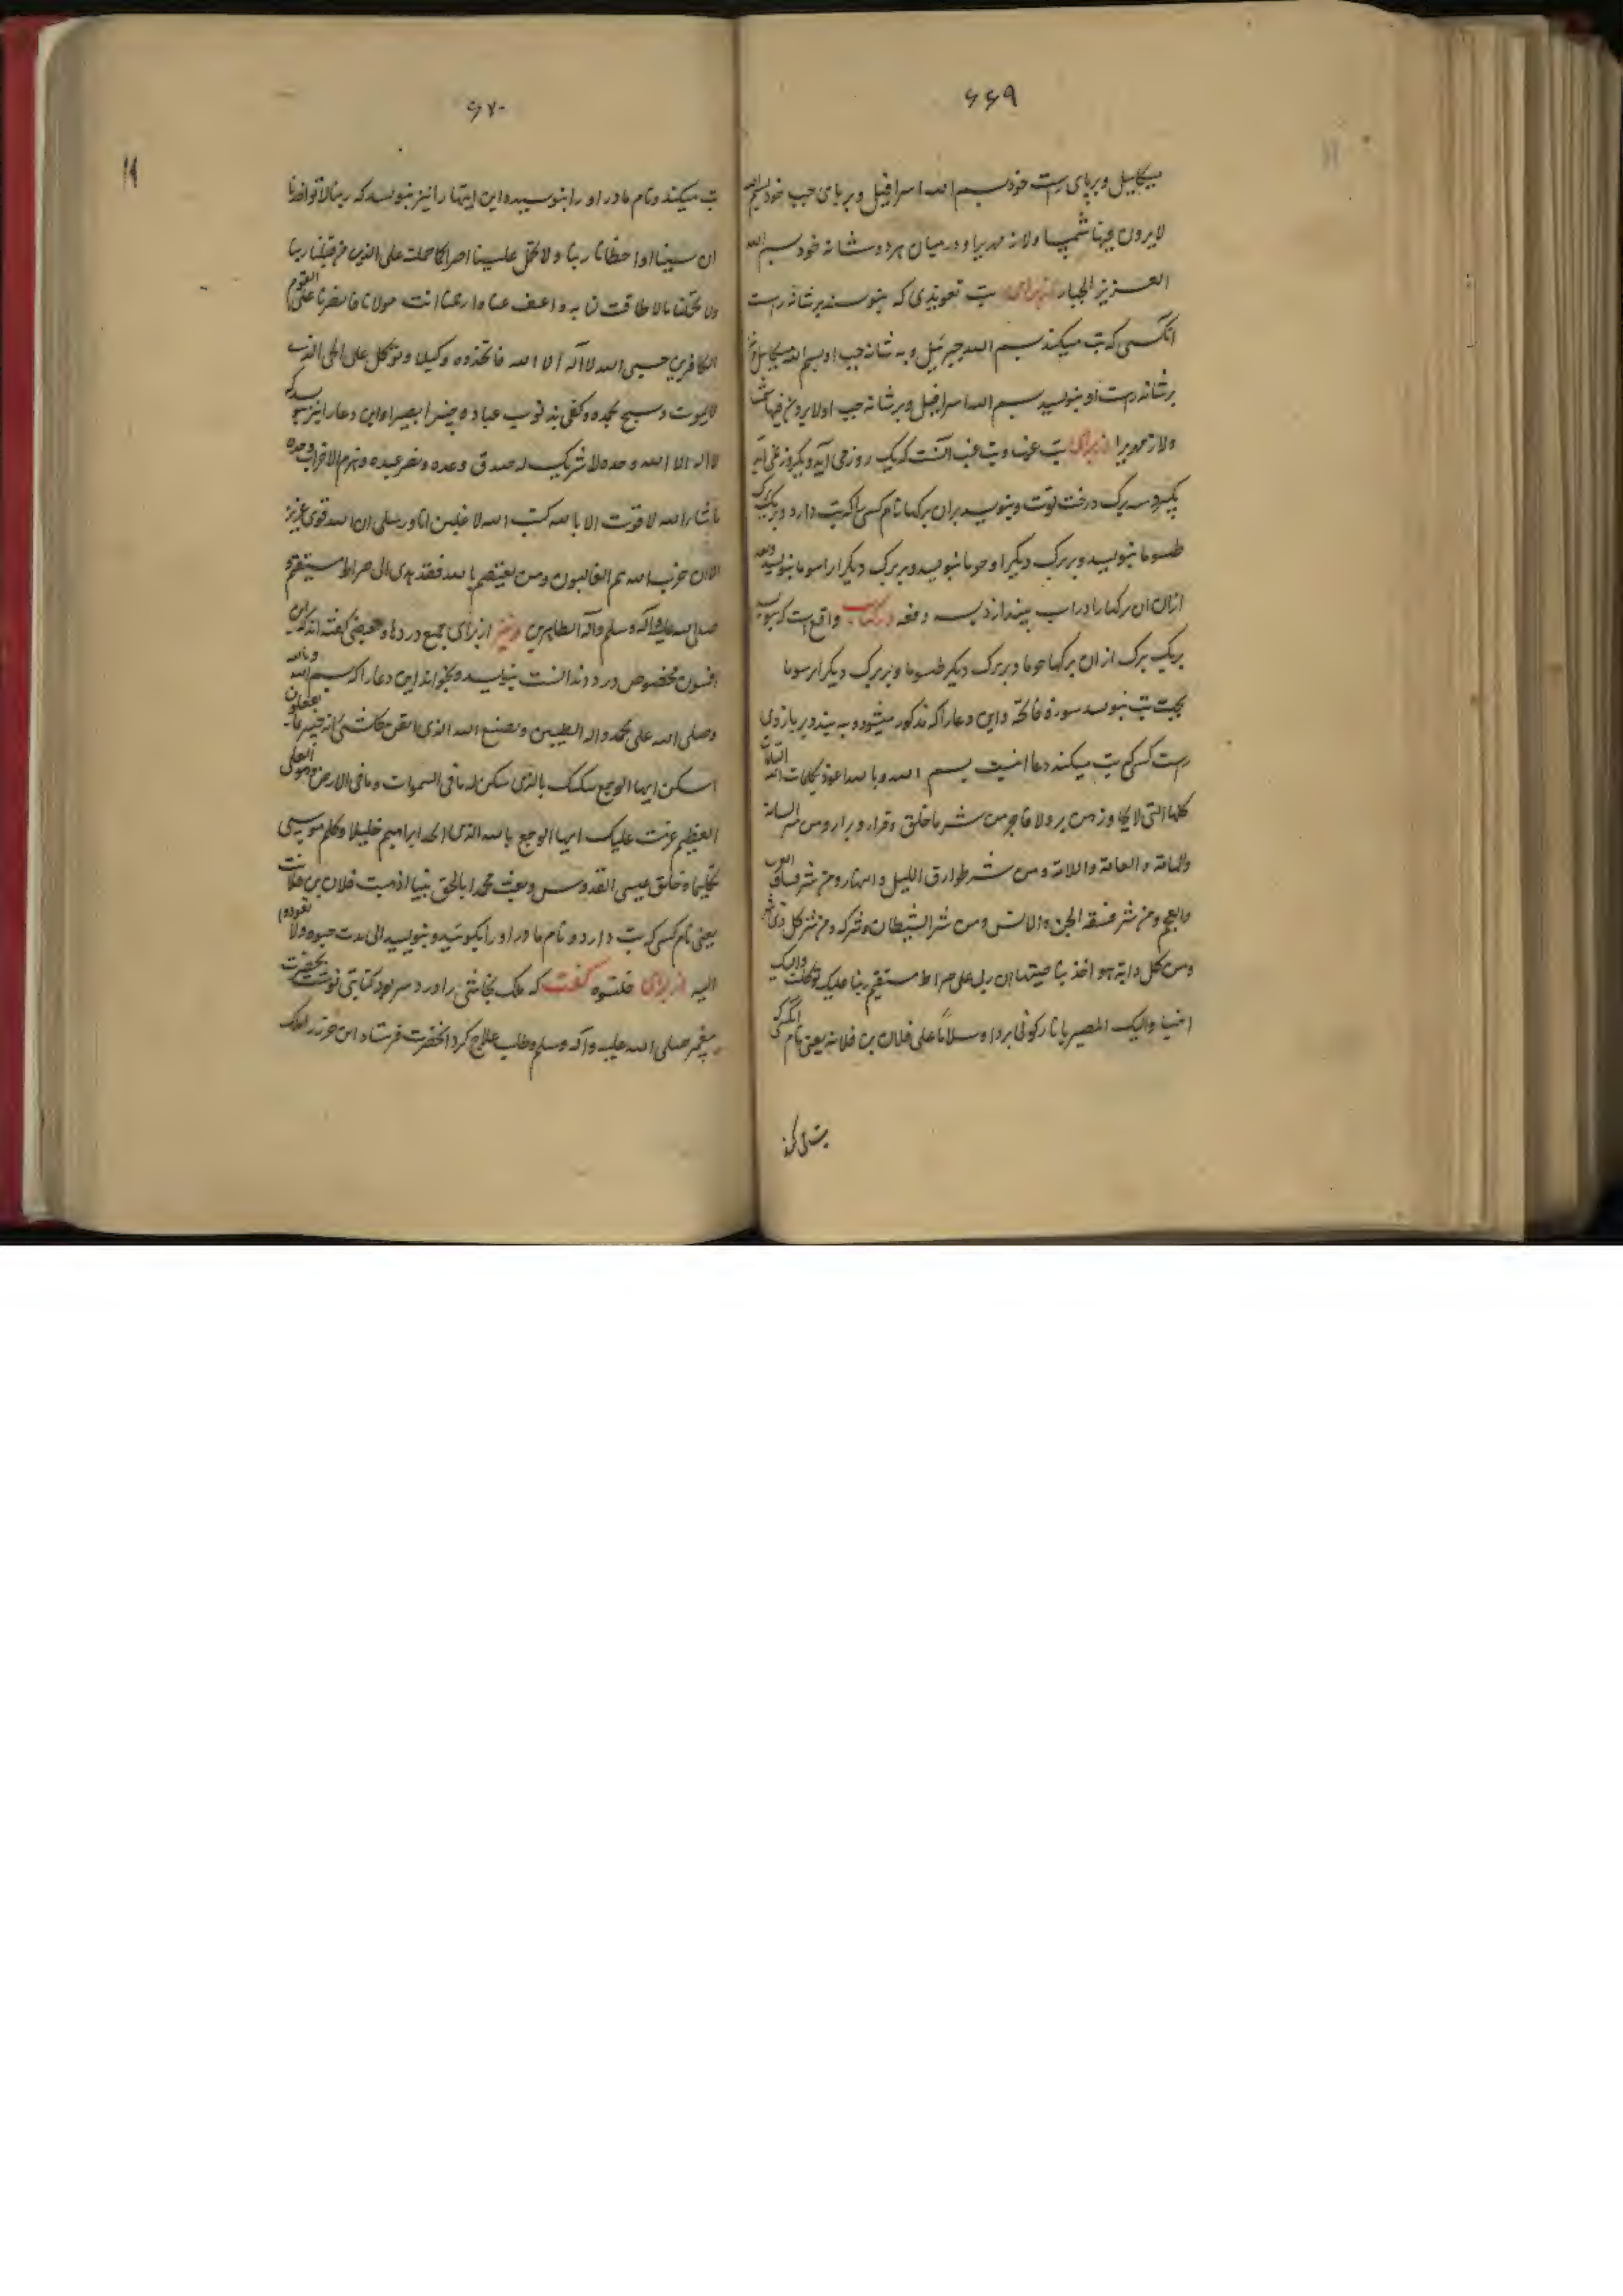 ۶۶۹
میکاییل و برپای رست خود بسم الله اسرافیل و برپای چپ خود بسم الله
لایرون فیها شمسا ولا زمهریرا و در میان هر دو شانه خود بسم الله
العزیز الجبار از برای تب تعویذی که بنویسند بر شانه رست
انکسی که تب میکند بسم الله جبرئیل و به شانه چپ او بسم الله میکاییل و
برشانه رست او بنویسید بسم الله اسرافیل و بر شانه چپ او لایرون فیها شمسا
ولا زمهریرا از برای تب غب و تب غب آنست که یک روز می آید و یکروز نمی آید
بگیرد سه برک درخت توت و بنویسد بران برکها نام کسی را که تب دارد و بر یک برک
طسوما بنویسد و بر برک دیگر او حوما بنویسد و بر برک دیگر ابرسوما بنویسد و بعد
ازان ان برکها را در اب بیندازد سه دفعه در کتاب واقع است که بنویسد
بر یک برک ازان برکها حوما و بر برک دیگر طسوما و بر برک دیگر ابرسوما
بجهت تب بنویسد سورهٔ فاتحه و این دعا را که مذکور میشود و به بندد بر بازوی
رست کسی که تب میکند دعا اینست بسم الله و بالله اعوذ بکلمات الله التامات
کلها التی لا یجاوزهن بر ولا فاجر من شر ما خلق و ذرا و برا و من شر السامة
والهامة والعامة واللامة و من شر طوارق اللیل والنهار و من شر فساق العرب
والعجم و من شر فسقة الجن والانس و من شر الشیطان و شرکه و من شر کل ذی شر
و من کل دابة هو اخذ بناصیتها ان ربی علی صراط مستقیم ربنا علیک توکلنا والیک
انبنا والیک المصیر یا نار کونی بردا و سلاما علی فلان بن فلانه یعنی نام انکس که
تب میکند
۶۷۰
۱۹
تب میکند و نام مادر او را بنویسید و این ایتها را نیز بنویسد که ربنا لا تؤاخذنا
ان نسینا او اخطانا ربنا ولا تحمل علینا اصرا کما حملته علی الذین من قبلنا ربنا
ولا تحملنا مالا طاقت لنا به واعف عنا وارحمنا انت مولانا فانصرنا علی القوم
الکافرین حسبی الله لا آله الا الله فاتخذه وکیلا و توکل علی الحی الذی
لایموت وسبح بحمده وکفی به ذنوب عباده خبیرا بصیرا و این دعا را نیز بنویسد که
لا اله الا الله وحده لا شریک له صدق وعده و نصر عبده و هزم الاحزاب وحده
ماشاء الله لا قوت الا بالله کتب الله لاغلبن انا و رسلی ان الله قوی عزیز
الا ان حزب الله هم الغالبون و من یعتصم بالله فقد هدی الی صراط مستقیم و
صلی الله علیه و آله وسلم و آله الطاهرین و نیز از برای جمیع دردها و بعضی گفته اند که این
افسون مخصوص درد دندانست بنویسد و بخواند این دعا را که بسم الله و بالله
و صلی الله علی محمد واله الطیبین و بصنع الله الذی اتقن کل شی انه خبیر بما یفعلون
اسکن ایها الوجع سکنتک بالذی سکن له ما فی السموات و ما فی الارض و هو العلی
العظیم عزمت علیک ایها الوجع بالله الذی اتخذ ابراهیم خلیلا و کلم موسی
تکلیما و خلق عیسی القدوس و بعث محمدا بالحق نبیا اذهبت فلان بن فلانة
یعنی نام کسی که تب دارد و نام مادر او را بگویید و بنویسید الی مدت حیوه ولا تعودوا
الیه از برای گفت که ملک نجاشی را درد سر بود کتابتی نوشت بحضرت
پیغمبر صلی الله علیه و آله وسلم و طلب علاج کرد انحضرت فرستاد این حرز را